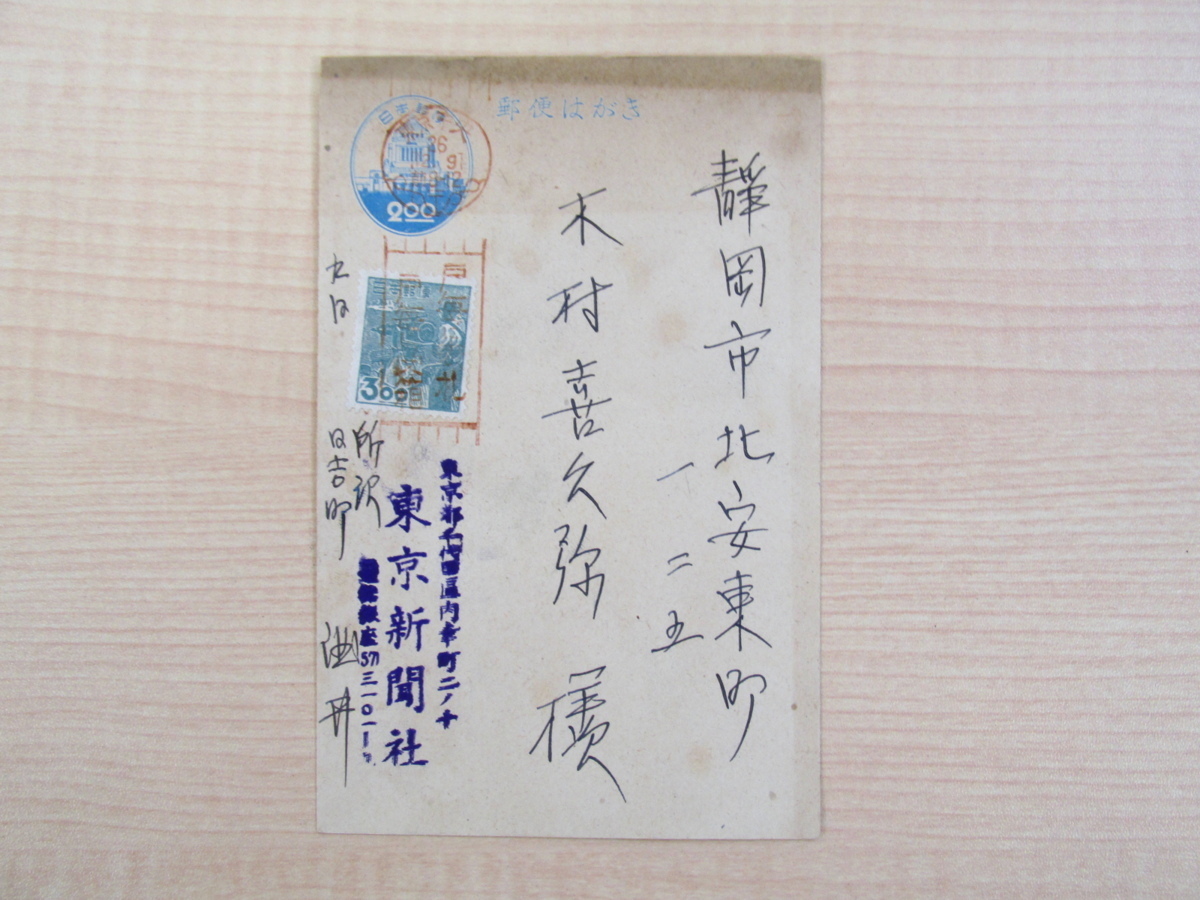 郵便はがき
静岡市北安東町
一二五
木村喜久弥様
日本郵便
26
2.00
九日
日本郵便
3.00
東京都千代田区内幸町二ノ十
東京新聞社
電話銀座(57)三一〇一